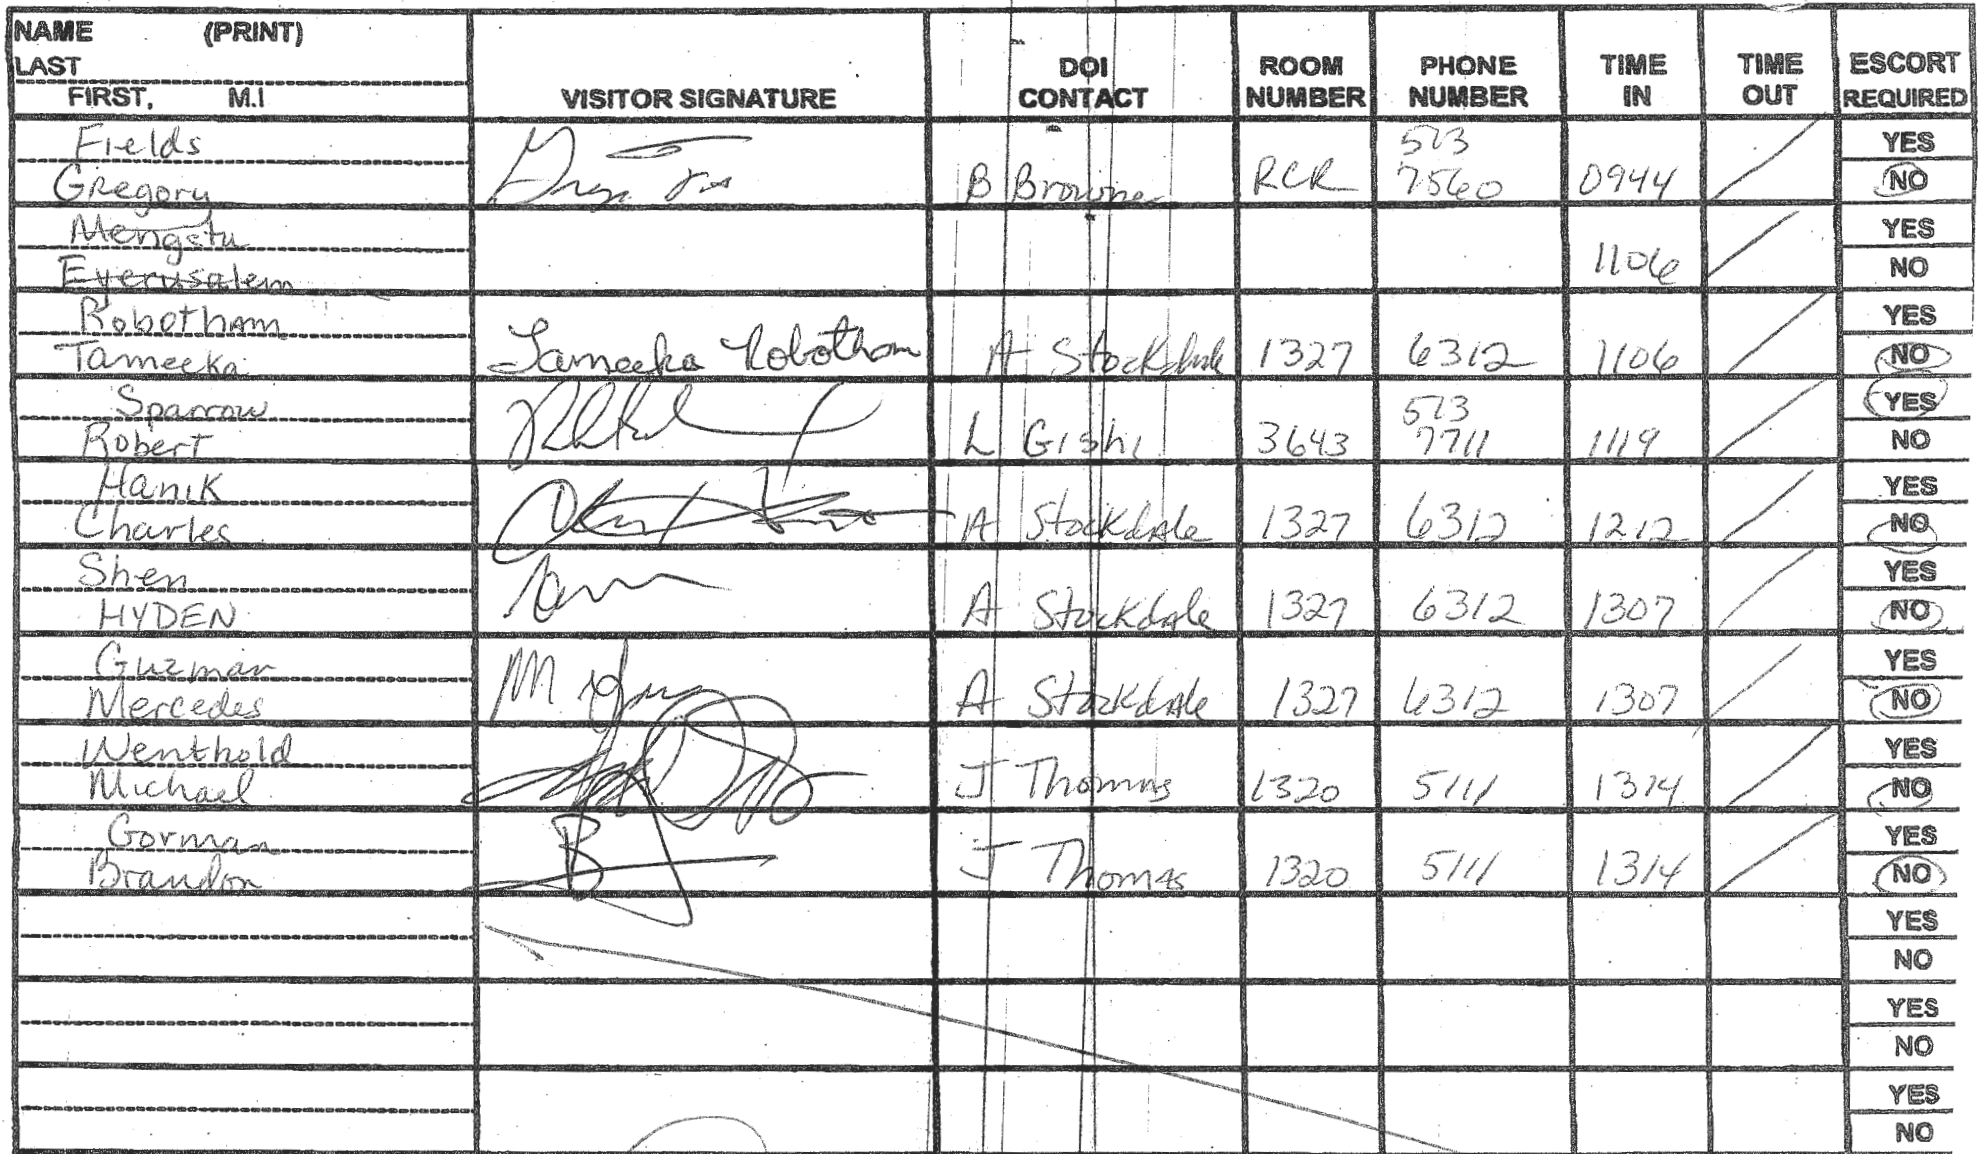 NAME (PRINT)
LAST
FIRST, M.I
VISITOR SIGNATURE
DOI CONTACT
ROOM NUMBER
PHONE NUMBER
TIME IN
TIME OUT
ESCORT REQUIRED
Fields 573 YES
Gregory B Browne RCR 7560 0944 NO
Mengstu YES
Eyerusalem 1106 NO
Robotham YES
Tameeka Tameeka Robotham A Stockdale 1327 6312 1106 NO
Sparrow 573 YES
Robert L Gishi 3643 7711 1119 NO
Hanik YES
Charles A Stockdale 1327 6312 1212 NO
Shen YES
HYDEN A Stockdale 1327 6312 1307 NO
Guzman YES
Mercedes A Stockdale 1327 6312 1307 NO
Wenthold YES
Michael J Thomas 1320 5111 1314 NO
Gorman YES
Brandon J Thomas 1320 5111 1314 NO
YES
NO
YES
NO
YES
NO